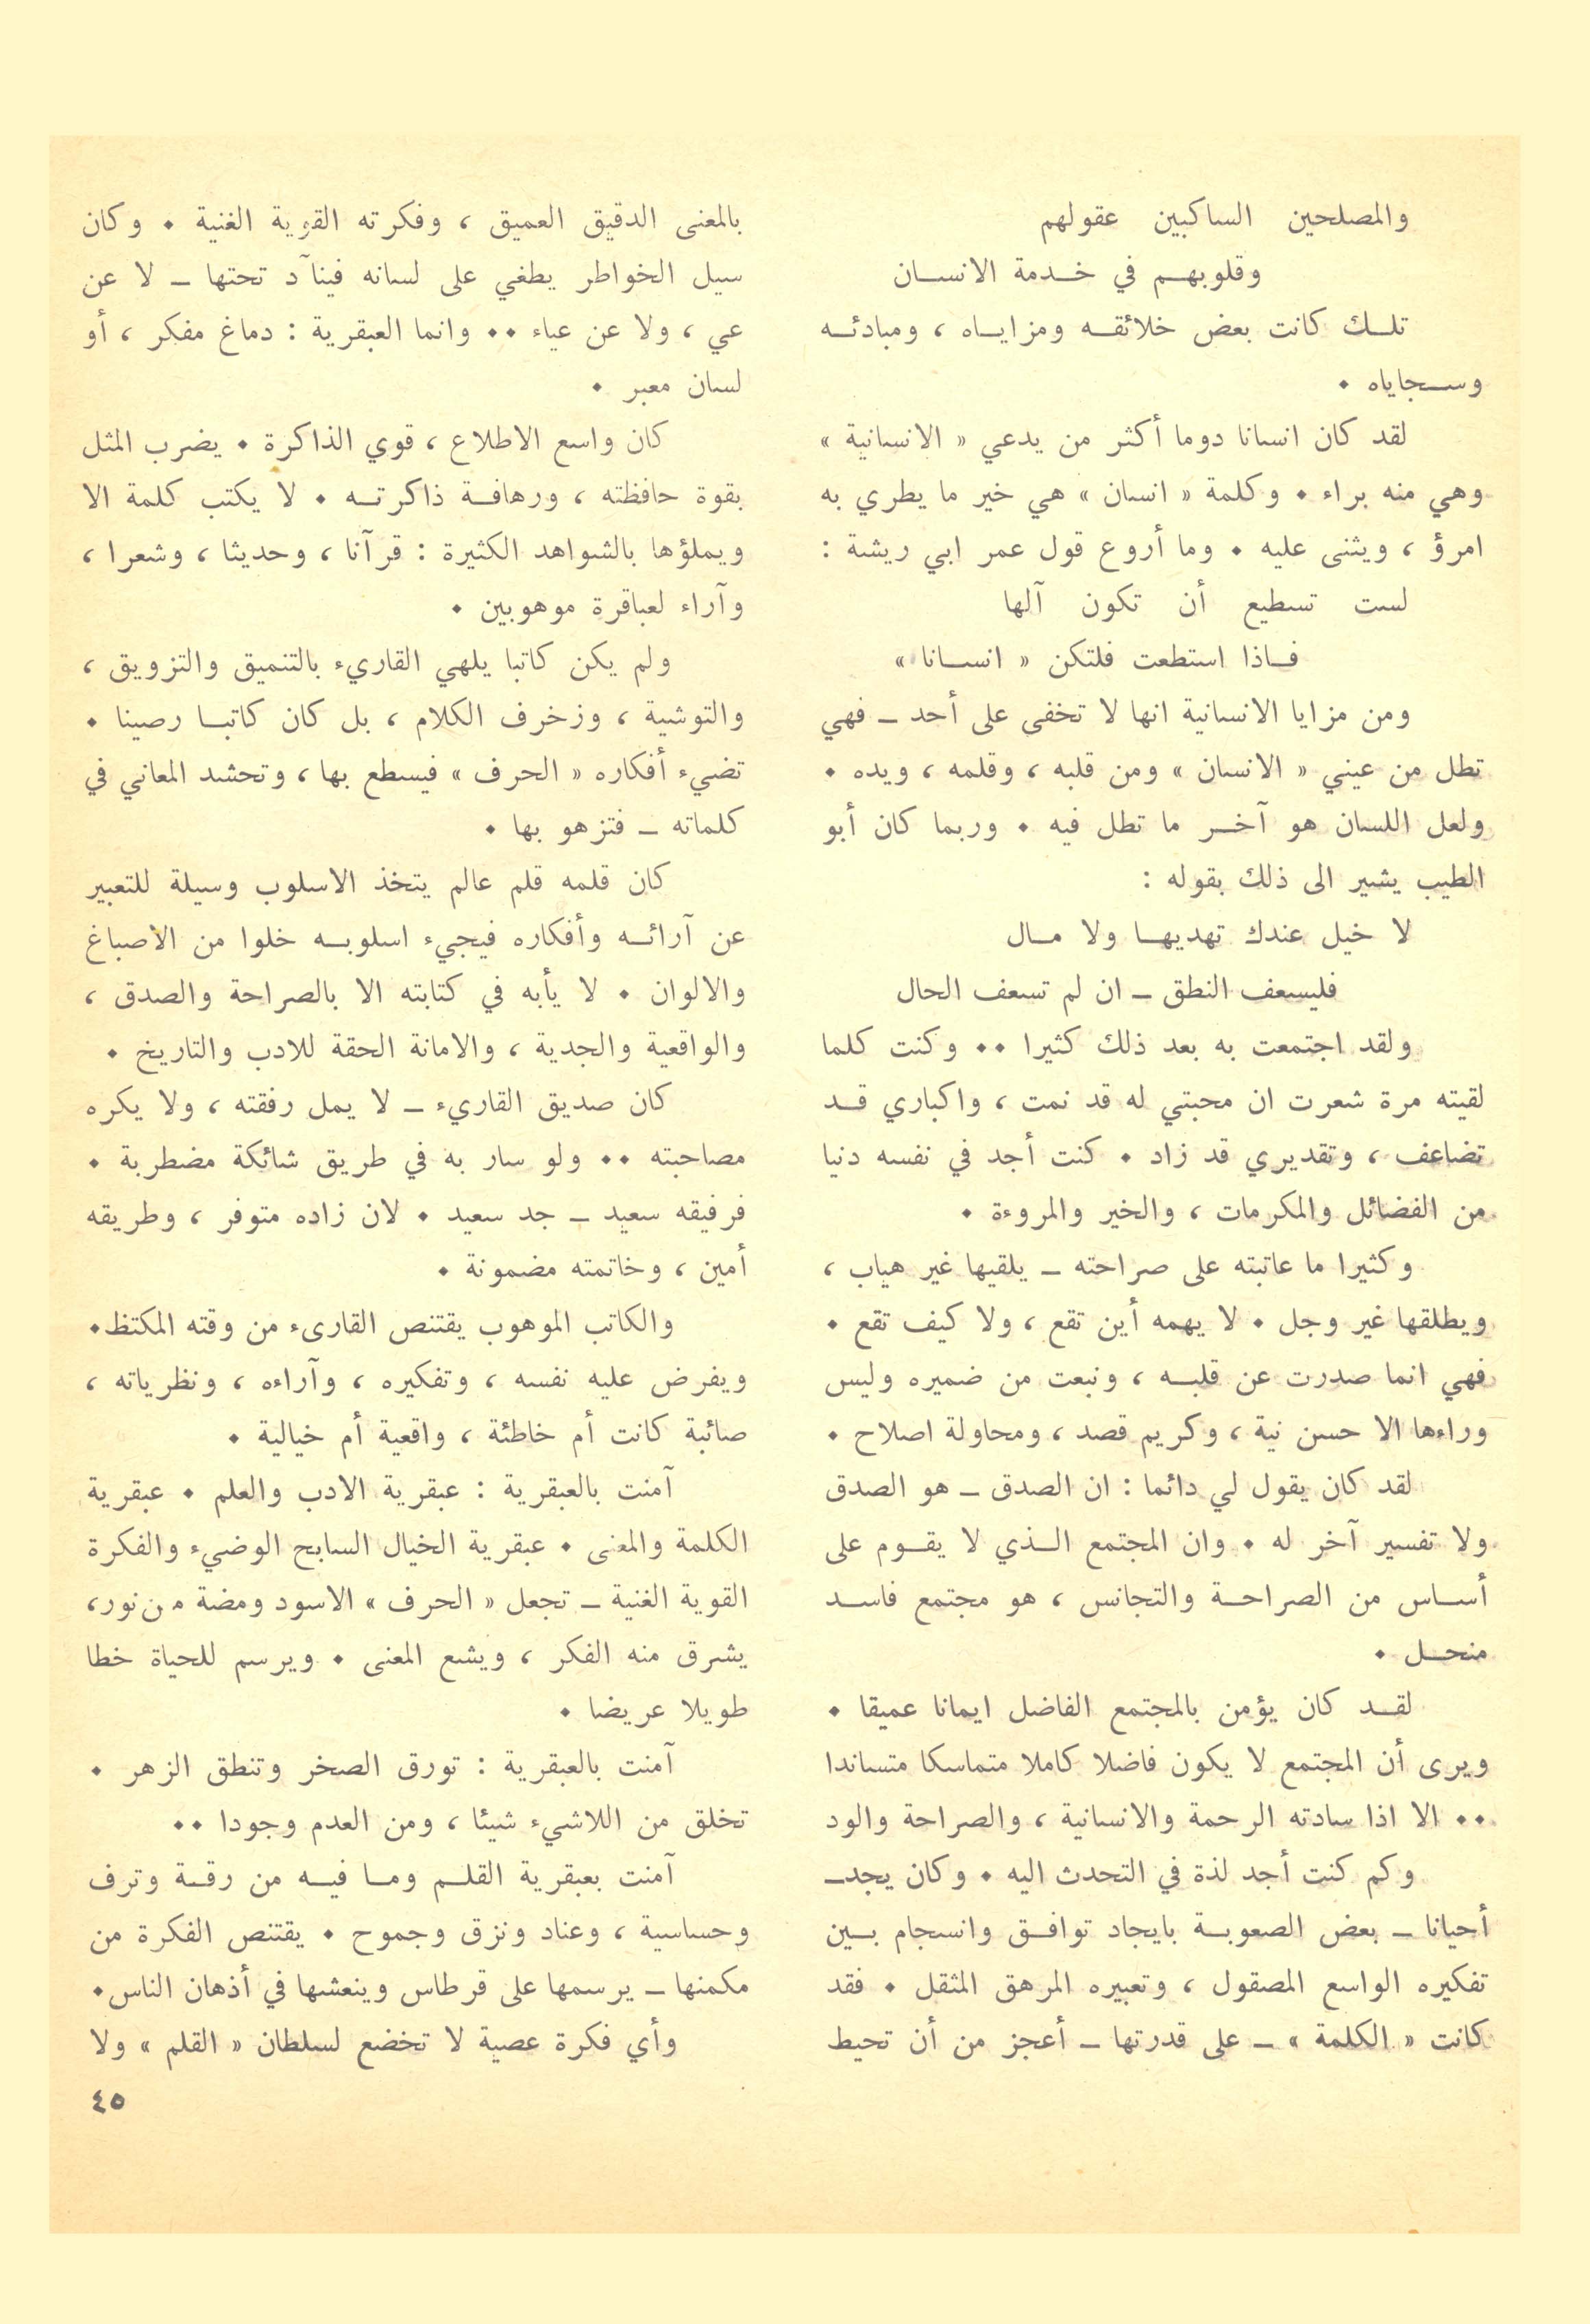 والمصلحين الساكبين عقولهم
وقلوبهم في خدمة الانسان
تلك كانت بعض خلائقه ومزاياه ، ومبادئه
وسجاياه .
لقد كان انسانا دوما أكثر من يدعي « الانسانية »
وهي منه براء . وكلمة « انسان » هي خير ما يطري به
امرؤ ، ويثنى عليه . وما أروع قول عمر ابي ريشة :
لست تسطيع أن تكون آلها
فاذا استطعت فلتكن « انسانا »
ومن مزايا الانسانية انها لا تخفى على أحد ــ فهي
تطل من عيني « الانسان » ومن قلبه ، وقلمه ، ويده .
ولعل اللسان هو آخر ما تطل فيه . وربما كان أبو
الطيب يشير الى ذلك بقوله :
لا خيل عندك تهديها ولا مال
فليسعف النطق ــ ان لم تسعف الحال
ولقد اجتمعت به بعد ذلك كثيرا .. وكنت كلما
لقيته مرة شعرت ان محبتي له قد نمت ، واكباري قد
تضاعف ، وتقديري قد زاد . كنت أجد في نفسه دنيا
من الفضائل والمكرمات ، والخير والمروءة .
وكثيرا ما عاتبته على صراحته ــ يلقيها غير هياب ،
ويطلقها غير وجل . لا يهمه أين تقع ، ولا كيف تقع .
فهي انما صدرت عن قلبه ، ونبعت من ضميره وليس
وراءها الا حسن نية ، وكريم قصد ، ومحاولة اصلاح .
لقد كان يقول لي دائما : ان الصدق ــ هو الصدق
ولا تفسير آخر له . وان المجتمع الذي لا يقوم على
أساس من الصراحة والتجانس ، هو مجتمع فاسد
منحل .
لقد كان يؤمن بالمجتمع الفاضل ايمانا عميقا .
ويرى أن المجتمع لا يكون فاضلا كاملا متماسكا متساندا
.. الا اذا سادته الرحمة والانسانية ، والصراحة والود
وكم كنت أجد لذة في التحدث اليه . وكان يجد ــ
أحيانا ــ بعض الصعوبة بايجاد توافق وانسجام بين
تفكيره الواسع المصقول ، وتعبيره المرهق المثقل . فقد
كانت « الكلمة » ــ على قدرتها ــ أعجز من أن تحيط
بالمعنى الدقيق العميق ، وفكرته القوية الغنية . وكان
سيل الخواطر يطغي على لسانه فينآد تحتها ــ لا عن
عي ، ولا عن عياء .. وانما العبقرية : دماغ مفكر ، أو
لسان معبر .
كان واسع الاطلاع ، قوي الذاكرة . يضرب المثل
بقوة حافظته ، ورهافة ذاكرته . لا يكتب كلمة الا
ويملؤها بالشواهد الكثيرة : قرآنا ، وحديثا ، وشعرا ،
وآراء لعباقرة موهوبين .
ولم يكن كاتبا يلهي القاريء بالتنميق والتزويق ،
والتوشية ، وزخرف الكلام ، بل كان كاتبا رصينا .
تضيء أفكاره « الحرف » فيسطع بها ، وتحشد المعاني في
كلماته ــ فتزهو بها .
كان قلمه قلم عالم يتخذ الاسلوب وسيلة للتعبير
عن آرائه وأفكاره فيجيء اسلوبه خلوا من الاصباغ
والالوان . لا يأبه في كتابته الا بالصراحة والصدق ،
والواقعية والجدية ، والامانة الحقة للادب والتاريخ .
كان صديق القاريء ــ لا يمل رفقته ، ولا يكره
مصاحبته .. ولو سار به في طريق شائكة مضطربة .
فرفيقه سعيد ــ جد سعيد . لان زاده متوفر ، وطريقه
أمين ، وخاتمته مضمونة .
والكاتب الموهوب يقتنص القارىء من وقته المكتظ.
ويفرض عليه نفسه ، وتفكيره ، وآراءه ، ونظرياته ،
صائبة كانت أم خاطئة ، واقعية أم خيالية .
آمنت بالعبقرية : عبقرية الادب والعلم . عبقرية
الكلمة والمعنى . عبقرية الخيال السابح الوضيء والفكرة
القوية الغنية ــ تجعل « الحرف » الاسود ومضة من نور،
يشرق منه الفكر ، ويشع المعنى . ويرسم للحياة خطا
طويلا عريضا .
آمنت بالعبقرية : تورق الصخر وتنطق الزهر .
تخلق من اللاشيء شيئا ، ومن العدم وجودا ..
آمنت بعبقرية القلم وما فيه من رقة وترف
وحساسية ، وعناد ونزق وجموح . يقتنص الفكرة من
مكمنها ــ يرسمها على قرطاس وينعشها في أذهان الناس.
وأي فكرة عصية لا تخضع لسلطان « القلم » ولا
٤٥